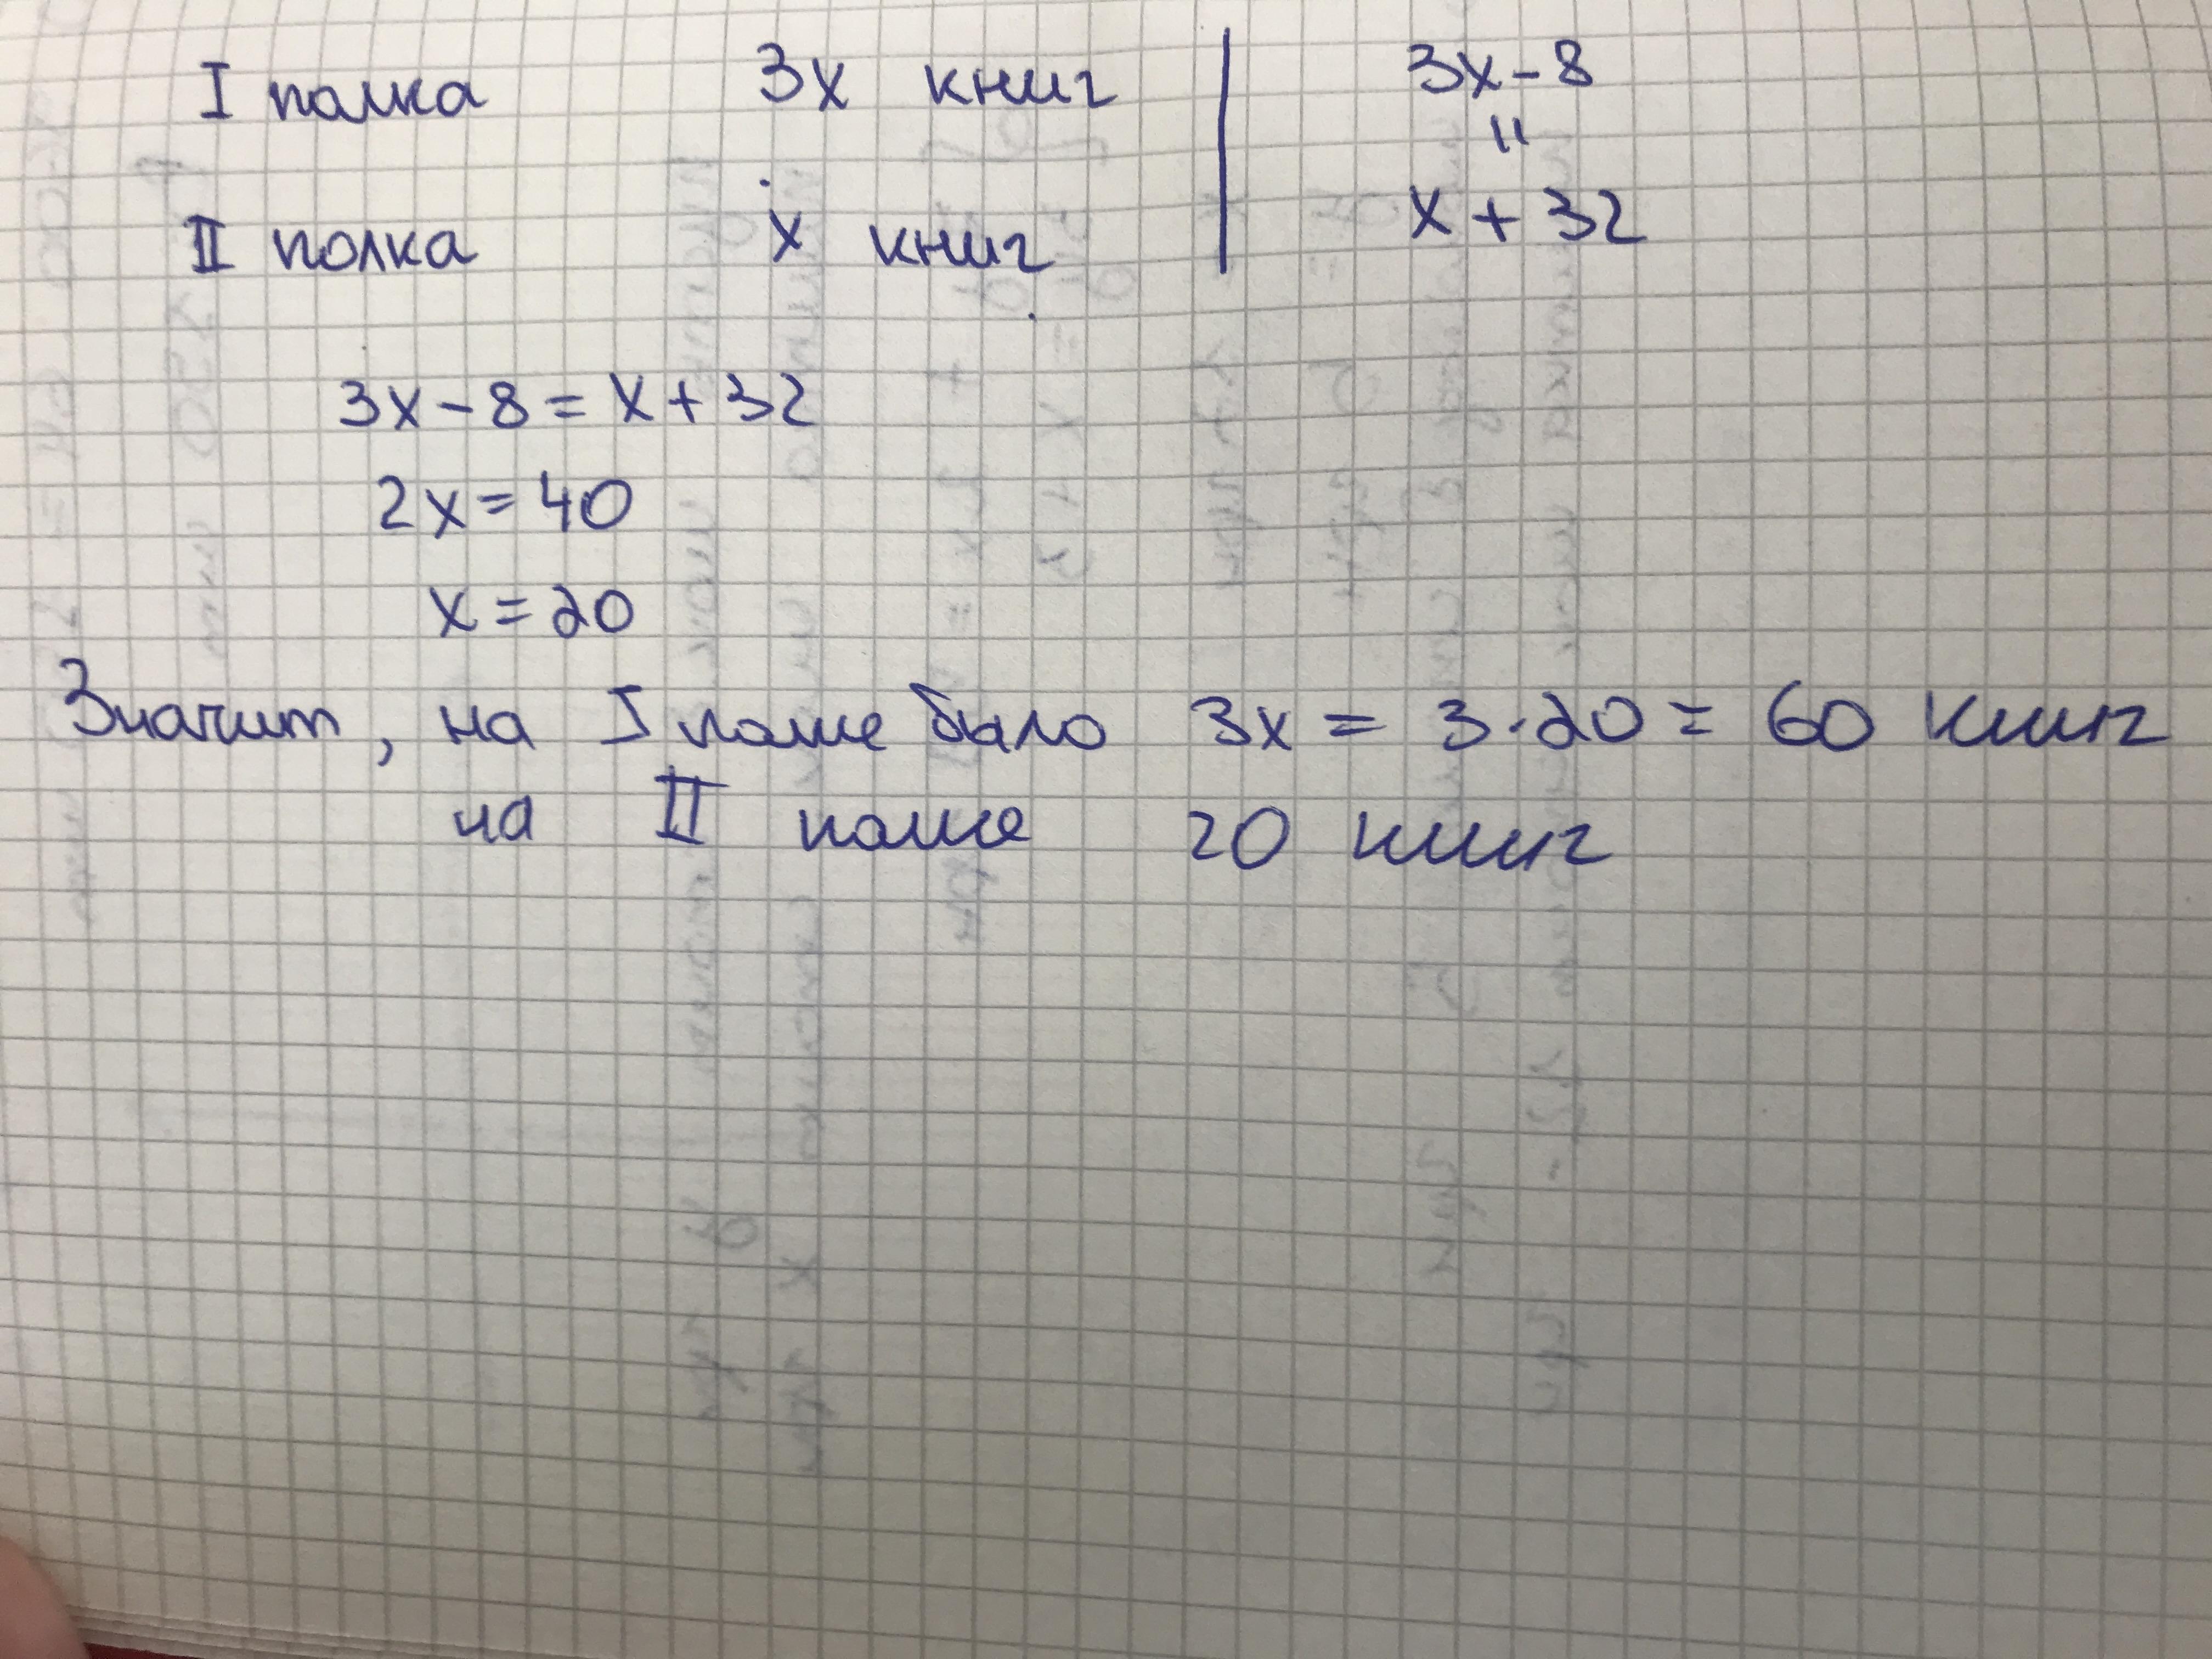 I полка 3x книг 3x-8
"
II полка x книг x+32
3x-8=x+32
2x=40
x=20
Значит, на I полке было 3x = 3·20= 60 книг
на II полке 20 книг